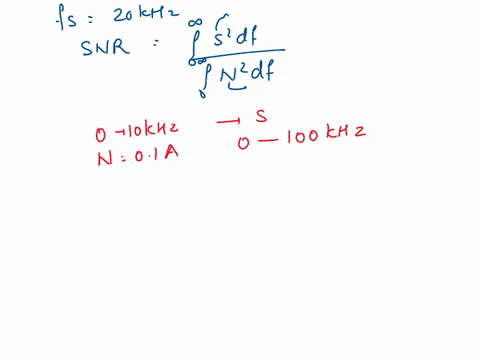 fs = 20 kHz
SNR = ∫₀^∞ S² df / ∫₀^∞ N² df
0 → 10 kHz → S
N = 0.1 A 0 — 100 kHz